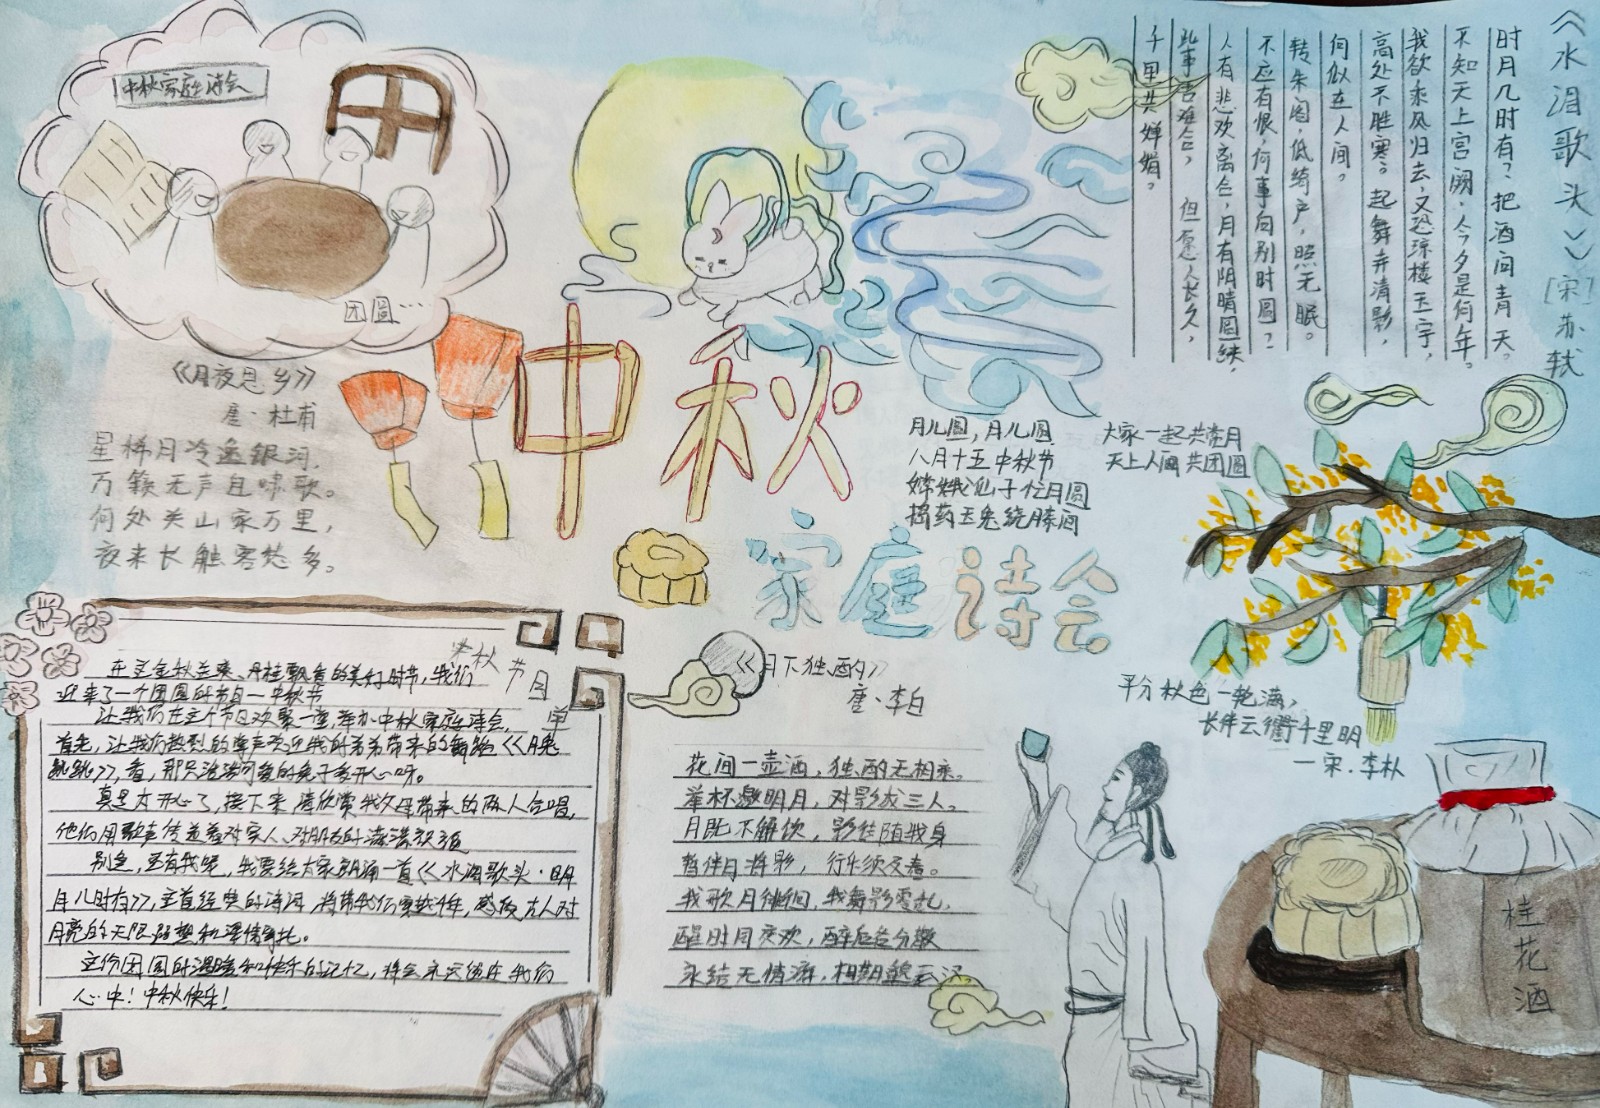 中秋家庭诗会
团圆……
《月夜思乡》
唐·杜甫
星稀月冷逸银河，
万籁无声自啸歌。
何处关山家万里，
夜来长触客愁多。
中秋
家庭诗会
《水调歌头》[宋]苏轼
时月几时有？把酒问青天。
不知天上宫阙，今夕是何年。
我欲乘风归去，又恐琼楼玉宇，
高处不胜寒。起舞弄清影，
何似在人间。
转朱阁，低绮户，照无眠。
不应有恨，何事向别时圆？
人有悲欢离合，月有阴晴圆缺，
此事古难全，但愿人长久，
千里共婵娟。
月儿圆，月儿圆
八月十五中秋节
嫦娥仙子忙月圆
捣药玉兔绕膝间
大家一起共赏月
天上人间共团圆
平分秋色一轮满，
长伴云衢千里明
—宋.李朴
《月下独酌》
唐、李白
花间一壶酒，独酌无相亲。
举杯邀明月，对影成三人。
月既不解饮，影徒随我身
暂伴月将影，行乐须及春。
我歌月徘徊，我舞影零乱，
醒时同交欢，醉后各分散
永结无情游，相期邈云汉。
桂花酒
中秋节目单
在这金秋送爽、丹桂飘香的美好时节，我们
迎来了一个团圆的节日—中秋节
让我们在这个节日欢聚一堂，举办中秋家庭诗会，
首先，让我们热烈的掌声欢迎我的弟弟带来的舞蹈《月兔
跳跳》，看，那只活泼可爱的兔子多开心呀。
真是太开心了，接下来请欣赏我父母带来的两人合唱，
他们用歌声传递着对家人、对朋友的满满祝福
别急，还有我呢，我要给大家朗诵一首《水调歌头·明
月几时有》，这首经典的诗词，将带我们穿越千年，感受古人对
月亮的无限遐想和深情寄托。
这份团圆的温暖和快乐的记忆，将会永远留在我们
心中！中秋快乐！